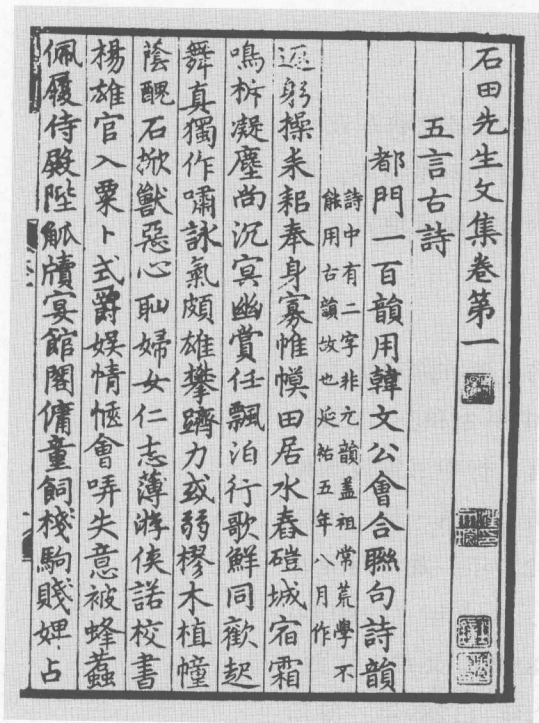 石田先生文集卷第一
五言古詩
都門一百韻用韓文公會合聯句詩韻
詩中有二字非元韻盖祖常荒學不
能用古韻故也延祐五年八月作
躬操耒耜奉身寡帷幙田居水舂磑城宿霜
鳴柝凝塵尚沉冥幽賞任飄泊行歌鮮同歡起
舞真獨作嘯詠氣頗雄攀躋力或弱樛木植幢
蔭醜石掀獸惡心耻婦女仁志薄游俠諾校書
楊雄官入粟卜式爵娛情愜會哢失意被蜂蠚
佩履侍殿陛觚牘宴館閣傭童飼棧駒賤婢占